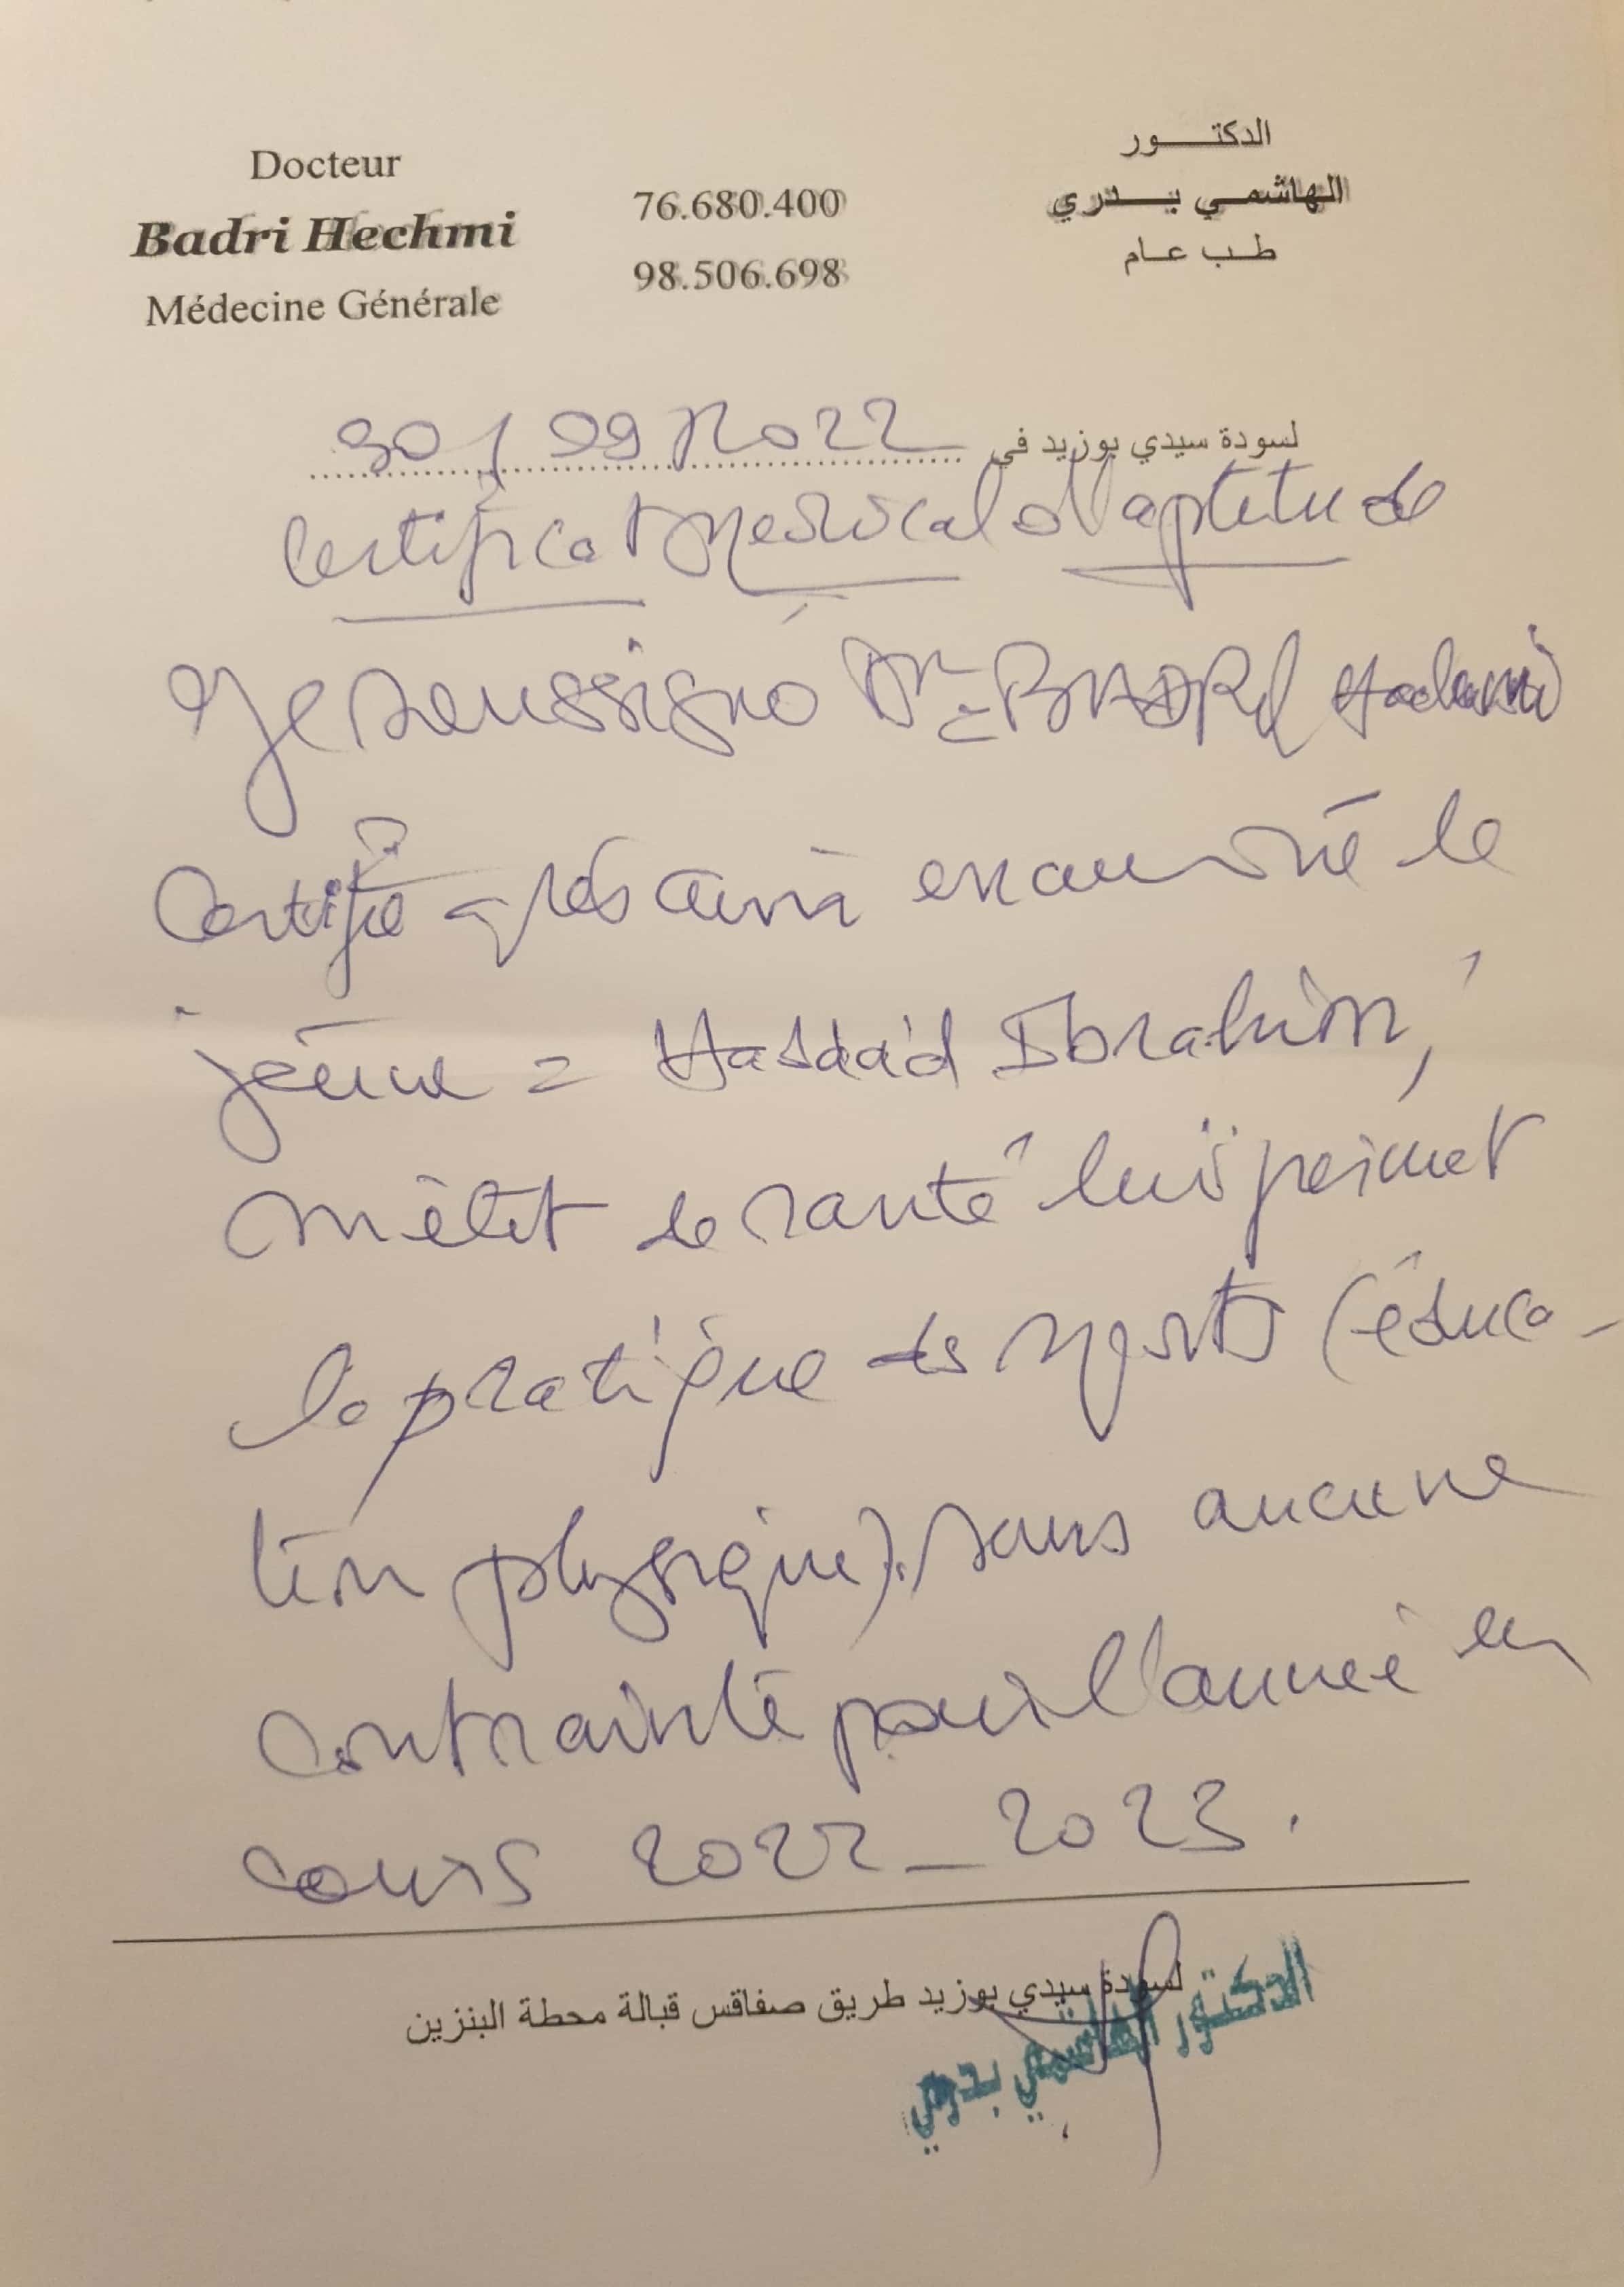 Docteur
Badri Hechmi
Médecine Générale
76.680.400
98.506.698
الدكتور
الهاشمي بدري
طب عام
لسودة سيدي بوزيد في 30/09/2022
Certificat Médical d'aptitude
Je soussigné Dr = BADRI Hechmi
Certifie après avoir examiné le
jeune = Haddad Ibrahim,
état de santé lui permet
la pratique des sports (éduca-
tion physique). sans aucune
contrainte pour l'année en
cours 2022_2023.
لسودة سيدي بوزيد طريق صفاقس قبالة محطة البنزين
الدكتور الهاشمي بدري